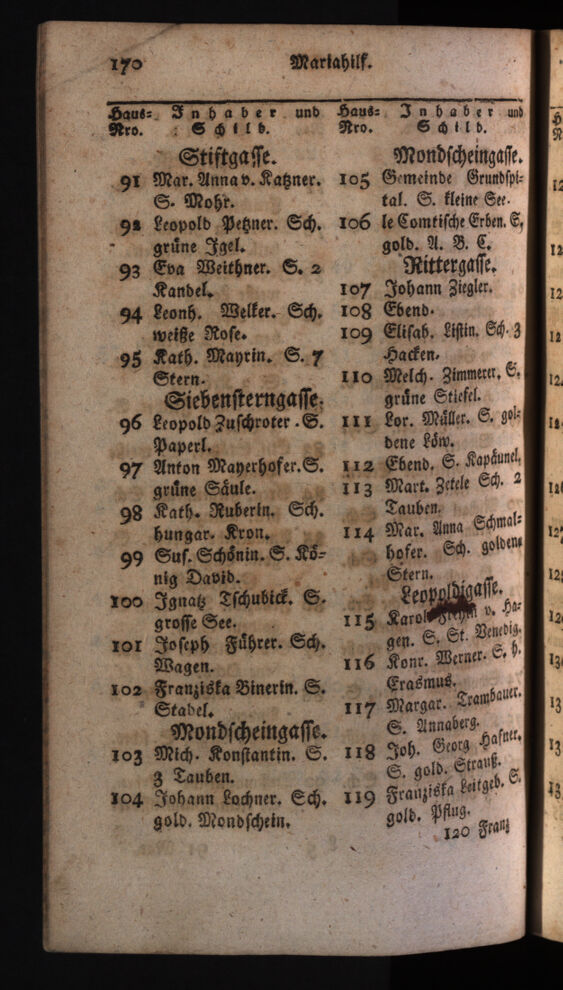 170 Mariahilf.
Haus= Inhaber und
Nro. Schild.
Stiftgasse.
91 Mar. Anna v. Katzner.
S. Mohr.
92 Leopold Petzner. Sch.
grüne Igel.
93 Eva Weithner. S. 2
Kandel.
94 Leonh. Welker. Sch.
weiße Rose.
95 Kath. Mayrin. S. 7
Stern.
Siebensterngasse.
96 Leopold Zuschroter. S.
Paperl.
97 Anton Mayerhofer. S.
grüne Säule.
98 Kath. Ruberin. Sch.
hungar. Kron.
99 Sus. Schönin. S. Kö=
nig David.
100 Ignatz Tschubick. S.
grosse See.
101 Joseph Führer. Sch.
Wagen.
102 Franziska Binerin. S.
Stadel.
Mondscheingasse.
103 Mich. Konstantin. S.
3 Tauben.
104 Johann Lochner. Sch.
gold. Mondschein.
Haus= Inhaber und
Nro. Schild.
Mondscheingasse.
105 Gemeinde Grundspi=
tal. S. kleine See.
106 le Comtische Erben. S.
gold. A. B. C.
Rittergasse.
107 Johann Ziegler.
108 Ebend.
109 Elisab. Listin. Sch. 3
Hacken.
110 Melch. Zimmerer. S.
grüne Stiefel.
111 Lor. Müller. S. gol=
dene Löw.
112 Ebend. S. Kapäunel.
113 Mart. Zetele Sch. 2
Tauben.
114 Mar. Anna Schmal=
hofer. Sch. goldene
Stern.
Leopoldigasse.
115 Karol v. Ha=
gen. S. St. Venedig.
116 Konr. Werner. S. h.
Erasmus.
117 Margar. Trambauer.
S. Annaberg.
118 Joh. Georg Hafner.
S. gold. Strauß.
119 Franziska Leitgeb. S.
gold. Pflug.
120 Franz